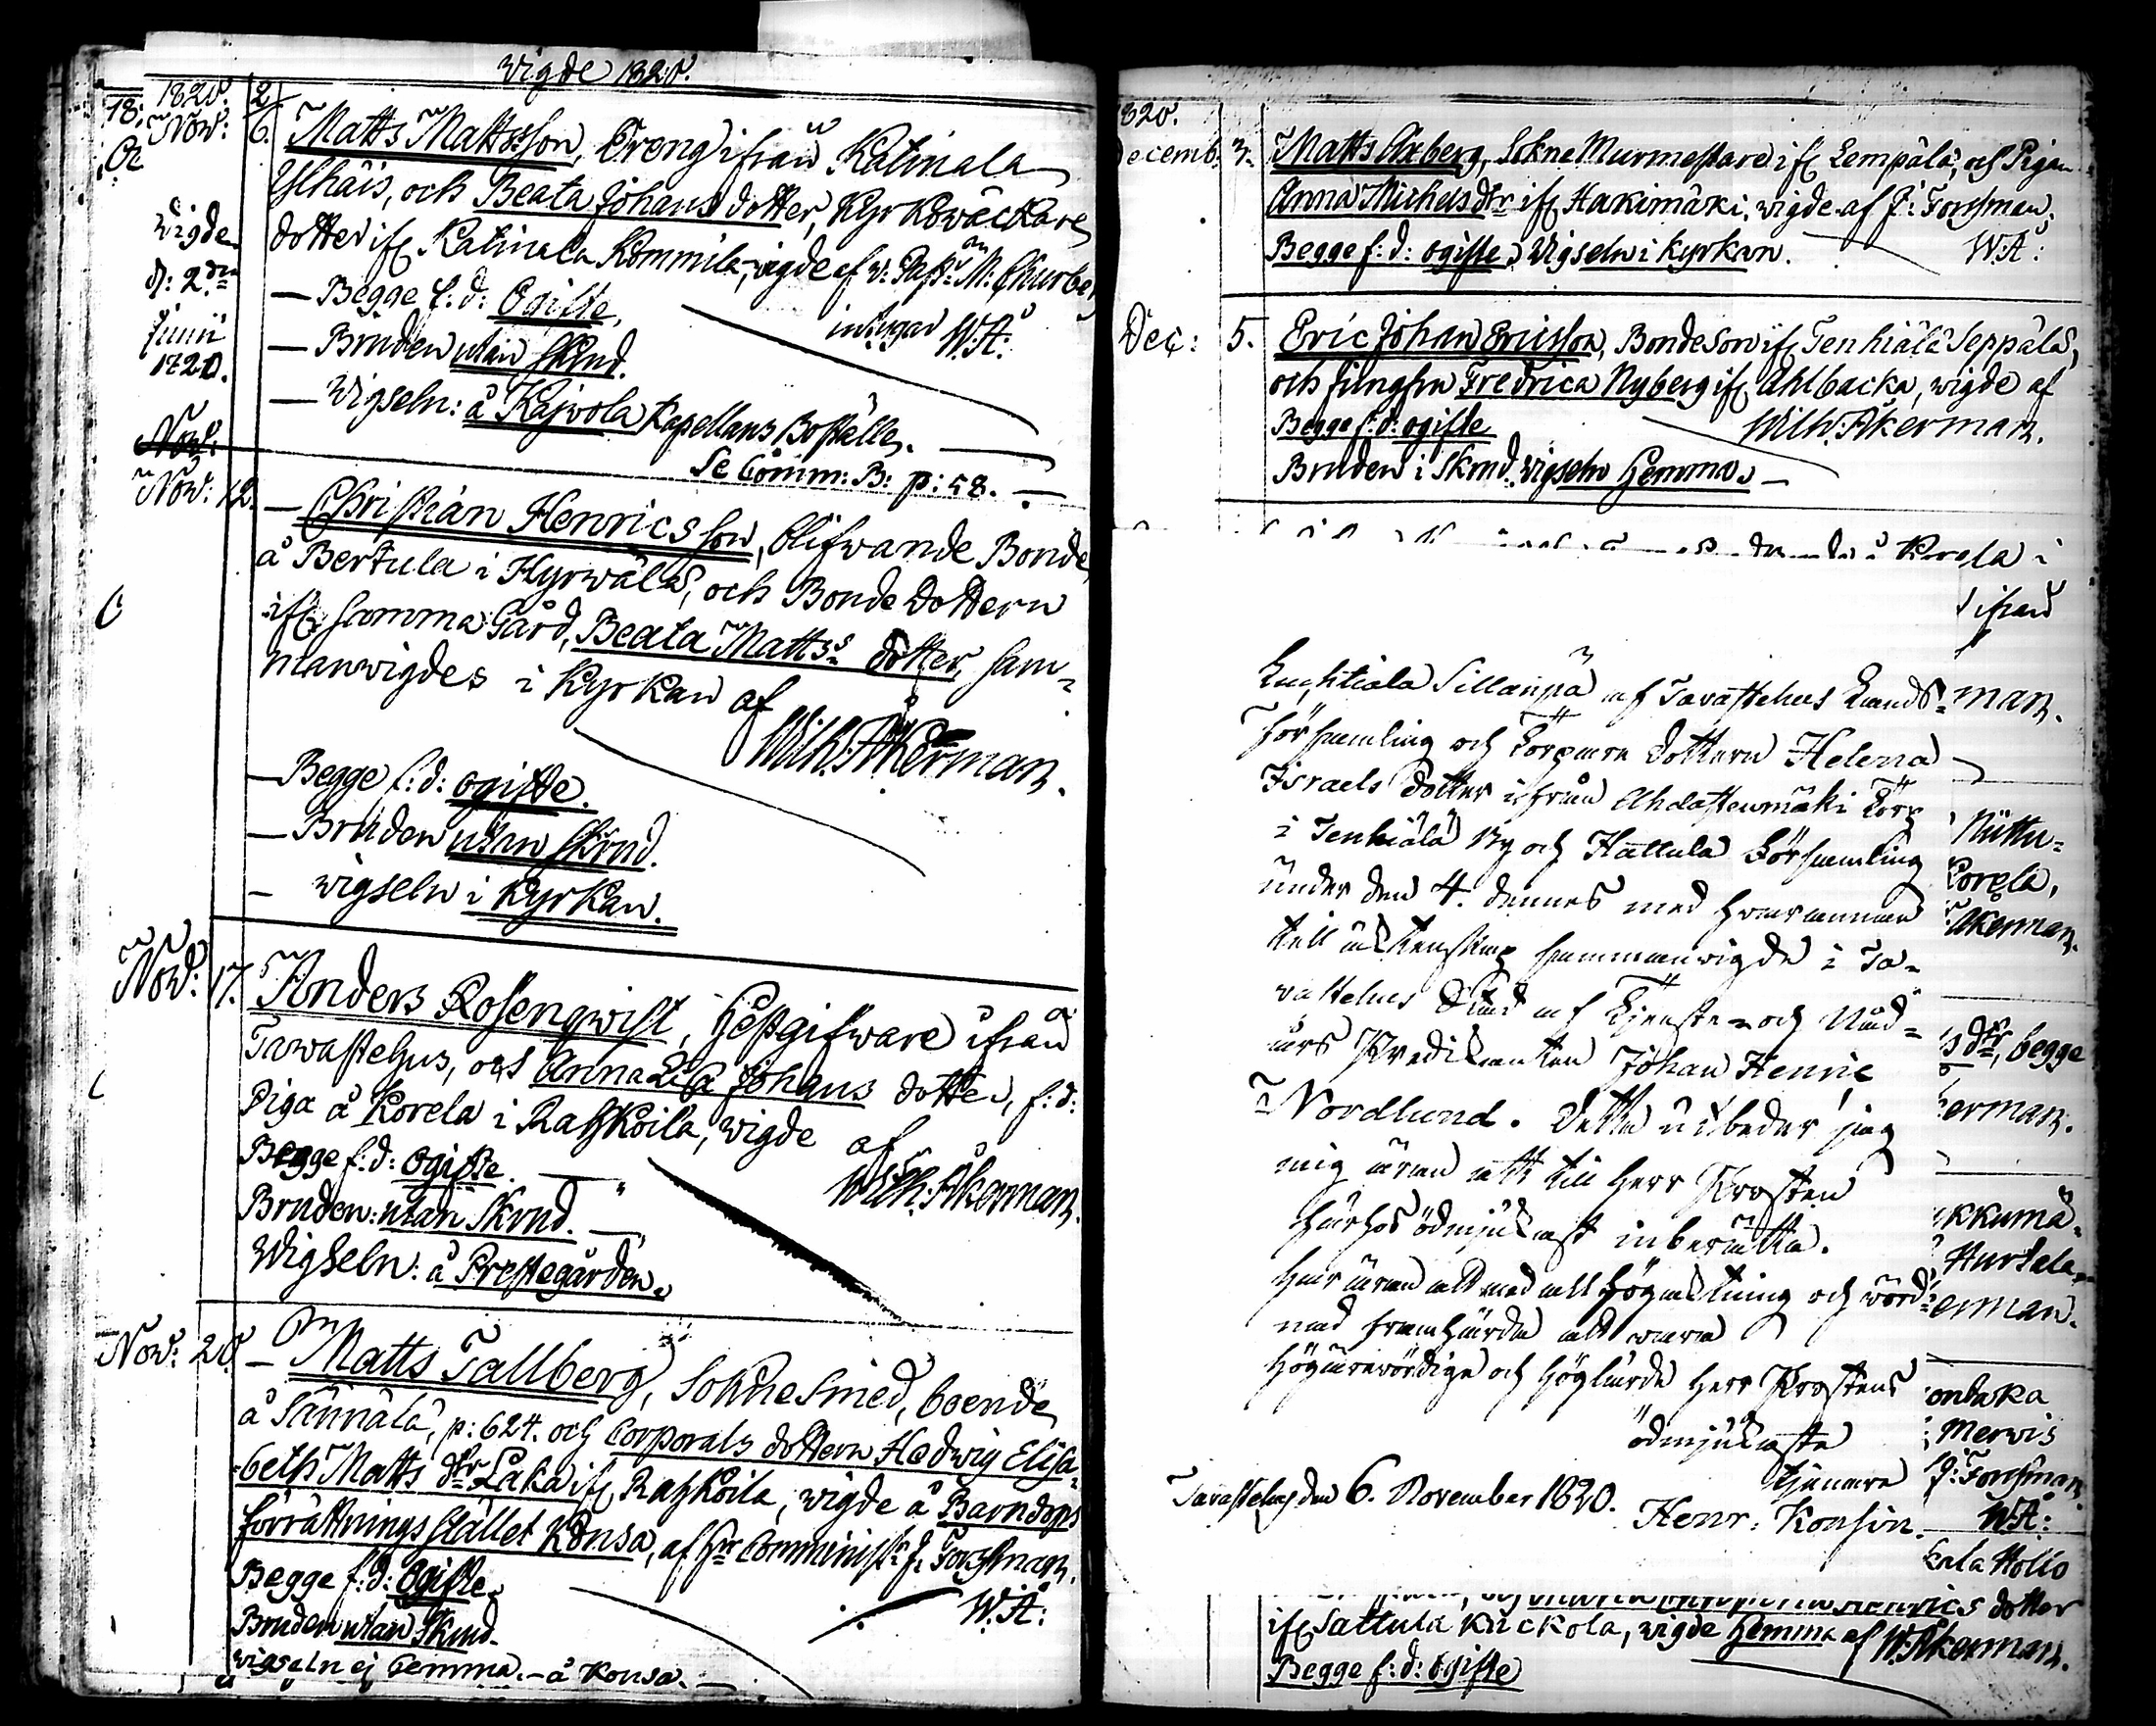 Wigde 1820.
1820.
Nov: 6. Matts Mattsson, Dreng ifrån Katinala
Ylhäis, och Beata Johans dotter, Kyrkowäcktare
dotter ifr Katinala Kommila, wigde af v: Past: M: Churberg
— Begge f: d: Ogifte,
W:Å:
— Bruden utan skrud.
— Wigseln: å Kajvola Kapellans Boställe.
Se Comm: B: p: 58. —
wigde
d: 2dra
Junii
Nov:
Nov: 12. — Christian Henricsson, blifwande Bonde
å Bertula i Hyrwälä, och Bonde dottern
ifr samma Gård, Beata Matts dotter, sam-
manwigdes i Kyrkan af
Wilh: Åkerman.
— Begge f: d: ogifte.
— Bruden utan skrud.
— wigseln i Kyrkan.
Nov: 17. Anders Rosenqwist, Gestgifware ifrån
Tawastehus, och Anna Lisa Johans dotter, f: d:
Piga å Korela i Ratzkoila, wigde af
Begge f: d: Ogifte.
Wilh: Åkerman.
Bruden: utan Skrud. —
Wigseln: å Prestegården.
Nov: 20 — Matts Tallberg, Sockne Smed, boende
å Sännälä, p: 624. och Corporals dottern Hedwig Elisa-
beth Matts dtr Laka ifr Ratzkoila, wigde å Barndops
förrättnings stället Konsa, af Hr Comminist: J: Forssman.
Begge f: d: Ogifte.
W:Å:
Bruden utan Skrud.
wigseln ej hemma. — å Konsa. —
1820.
Decemb. 3. Matts Axberg, Sokne Murmestare ifr Lempälä, och Pigan
Anna Michels dtr ifr Hakimäki, wigde af J: Forssman.
Begge f: d: ogifte, Wigseln i kyrkan. W:Å:
Dec: 5. Eric Johan Ericsson, Bondeson ifr Tenhiälä Seppälä,
och Jungfrn Fredrica Nyberg ifr Ahlbacka, wigde af
Begge f: d: ogifte
Wilh: Åkerman.
Bruden i Skrud. Wigseln hemma. —
å Korela i
ifrån
Luchtiala Sillanpä af Tavastehus Lands-
man.
Församling och Torpare dottern Helena
Israels dotter ifrån Ahdastenmäki Torp
i Tenhiälä By och Hattula Församling
under den 4. dennes med hwarannan
till äktenskap sammanwigde i Ta-
vastehus Stad af Tjenste- och Nåd-
års Predikanten Johan Henric
Nordlund. Detta utbeder jag
mig äran att till Herr Prosten
härhos ödmjukast inberätta.
Har äran att med all högaktning och wörd-
nad framhärda att wara
Högärewördige och Höglärde Herr Prostens
ödmjukaste
tjenare
Tavastehus den 6. November 1820.
Henr: Konsin.
Niittu-
Korela,
Åkerman.
s dtr, begge
erman.
kkumä-
Hursala
erman.
Mervis
J: Forssman.
W:Å:
kala Hollo
Henrics dotter
ifr Sattula Kuckola, wigde hemma af W: Åkerman.
Begge f: d: Ogifte